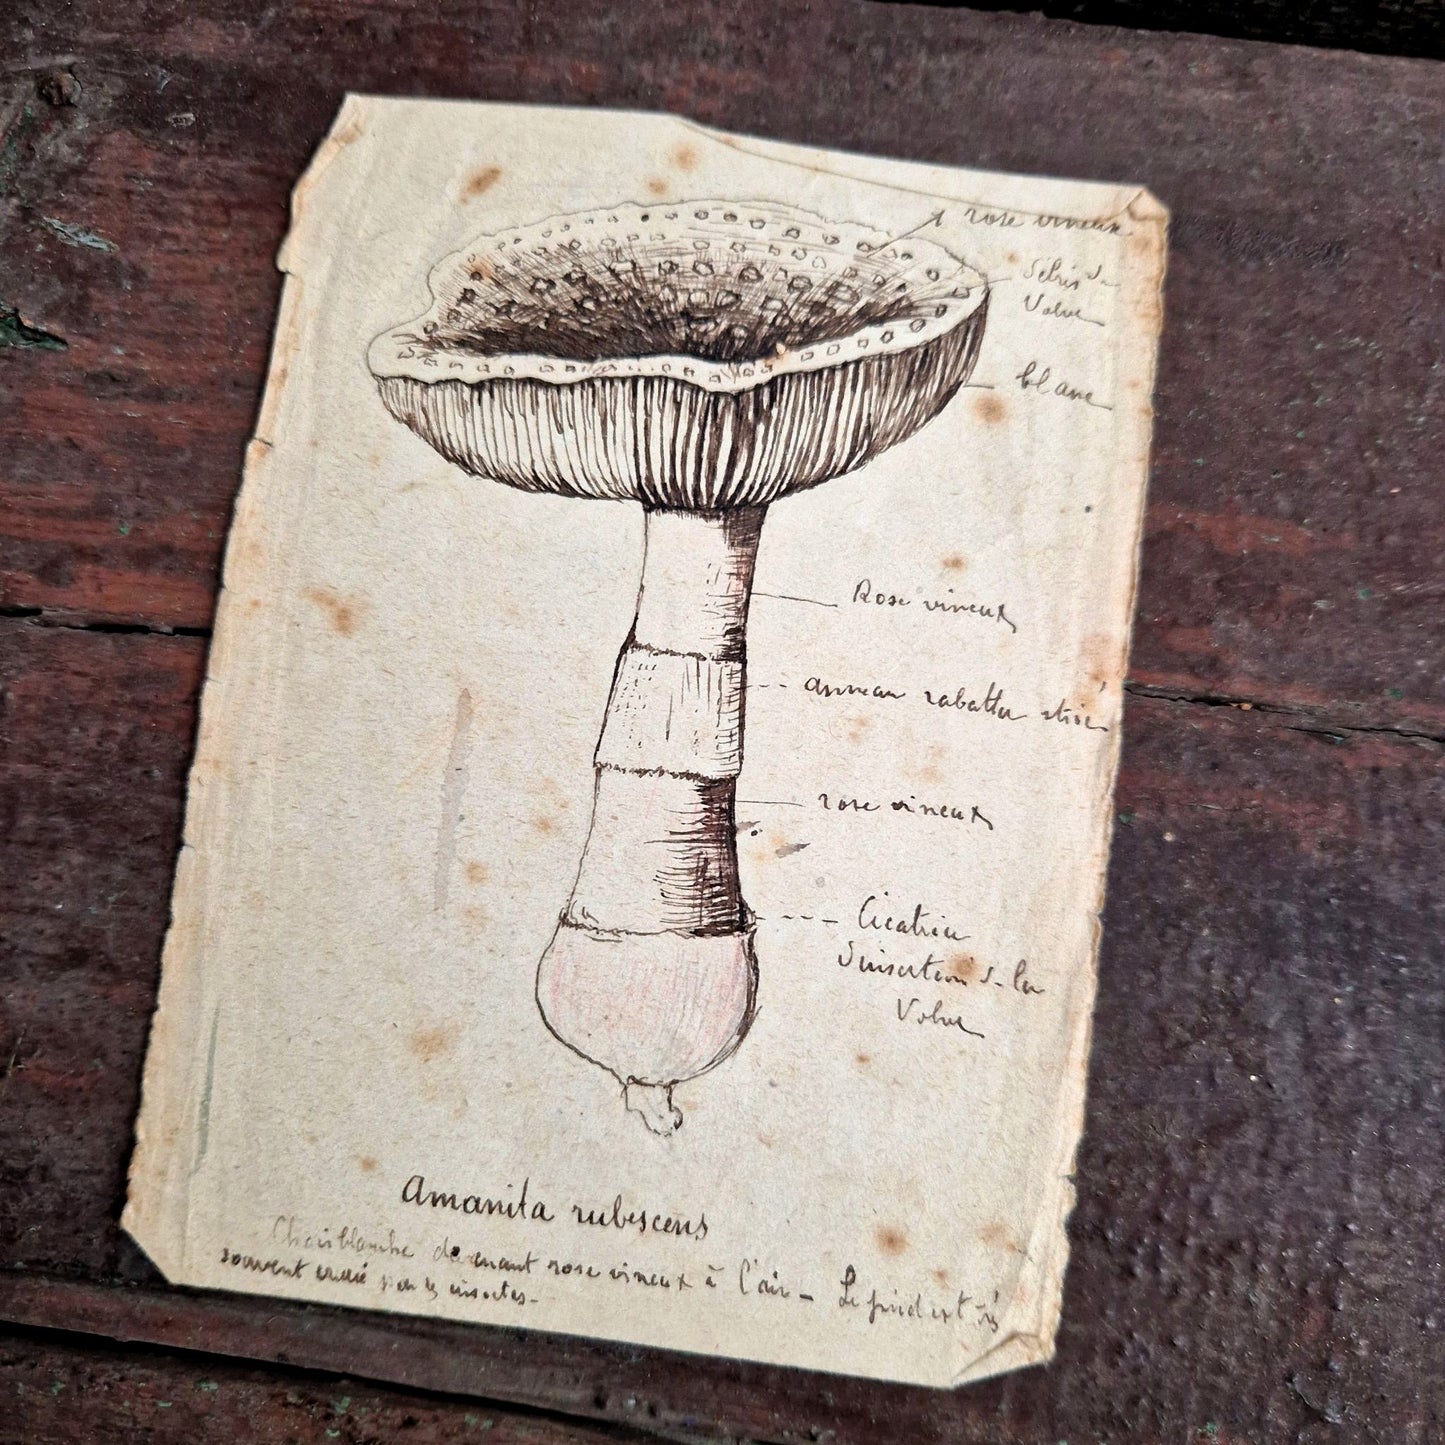 rose vineux.
débris d-
Volve
blanc
Rose vineux
anneau rabattu strié
rose vineux
Cicatrice
d'insertion d-la
Volve
Amanita rubescens
Chair blanche devenant rose vineux à l'air - Le pied est très
souvent par les insectes-